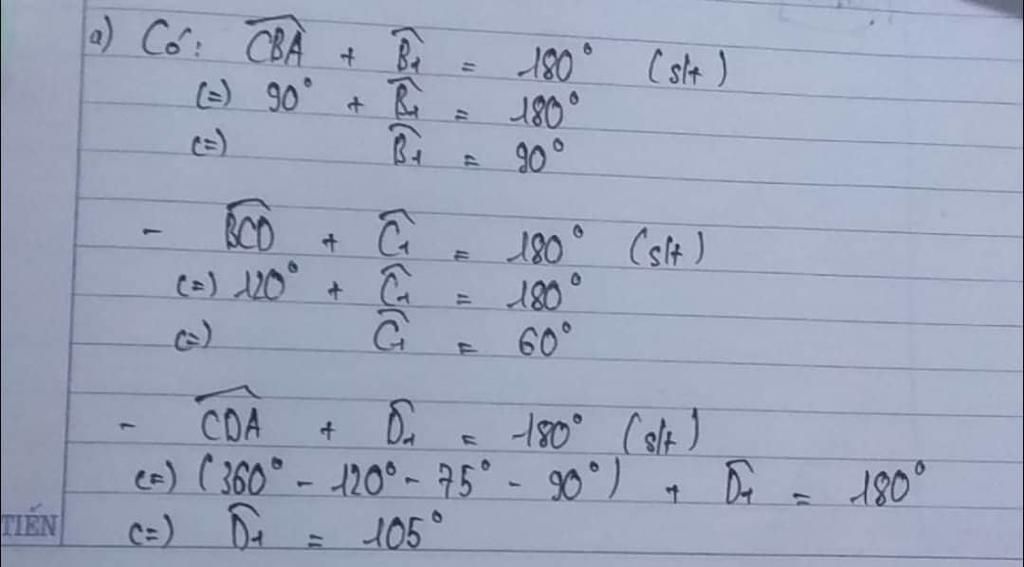 a) Có: \widehat{CBA} + \widehat{B_1} = 180° (slt)
(=) 90° + \widehat{B_1} = 180°
(=) \widehat{B_1} = 90°
- \widehat{BCD} + \widehat{C_1} = 180° (slt)
(=) 120° + \widehat{C_1} = 180°
(=) \widehat{C_1} = 60°
- \widehat{CDA} + \widehat{D_1} = 180° (slt)
(=) (360° - 120° - 75° - 90°) + \widehat{D_1} = 180°
TIẾN
(=) \widehat{D_1} = 105°